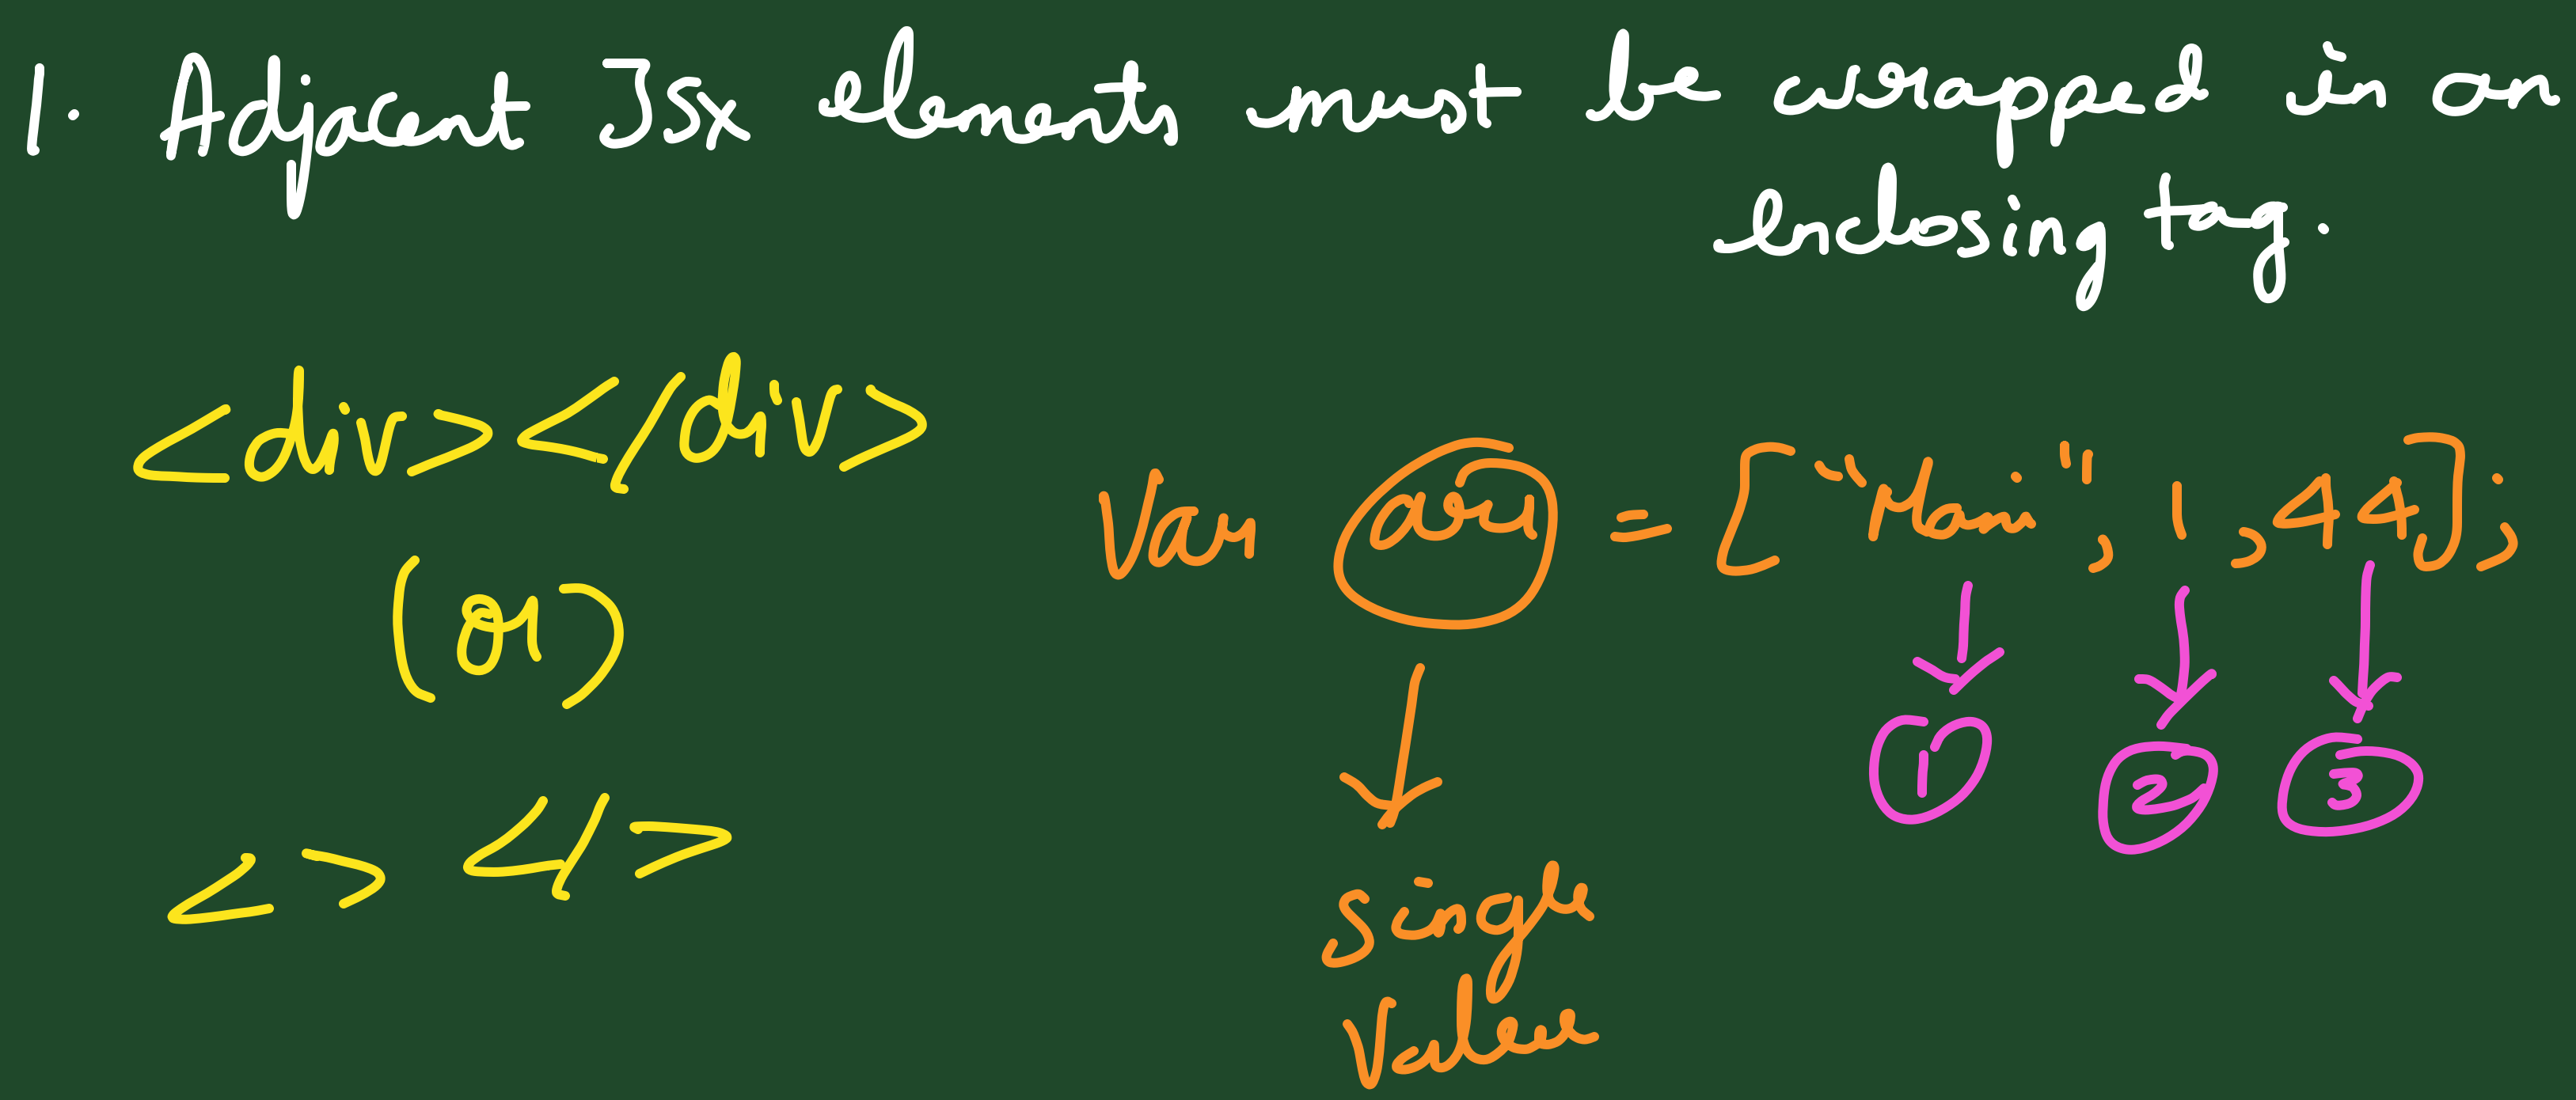 1. Adjacent JSX elements must be wrapped in an
enclosing tag.
<div></div>
(or)
<> </>
Var arr = ["Mani", 1, 44];
Single
Value
1 2 3